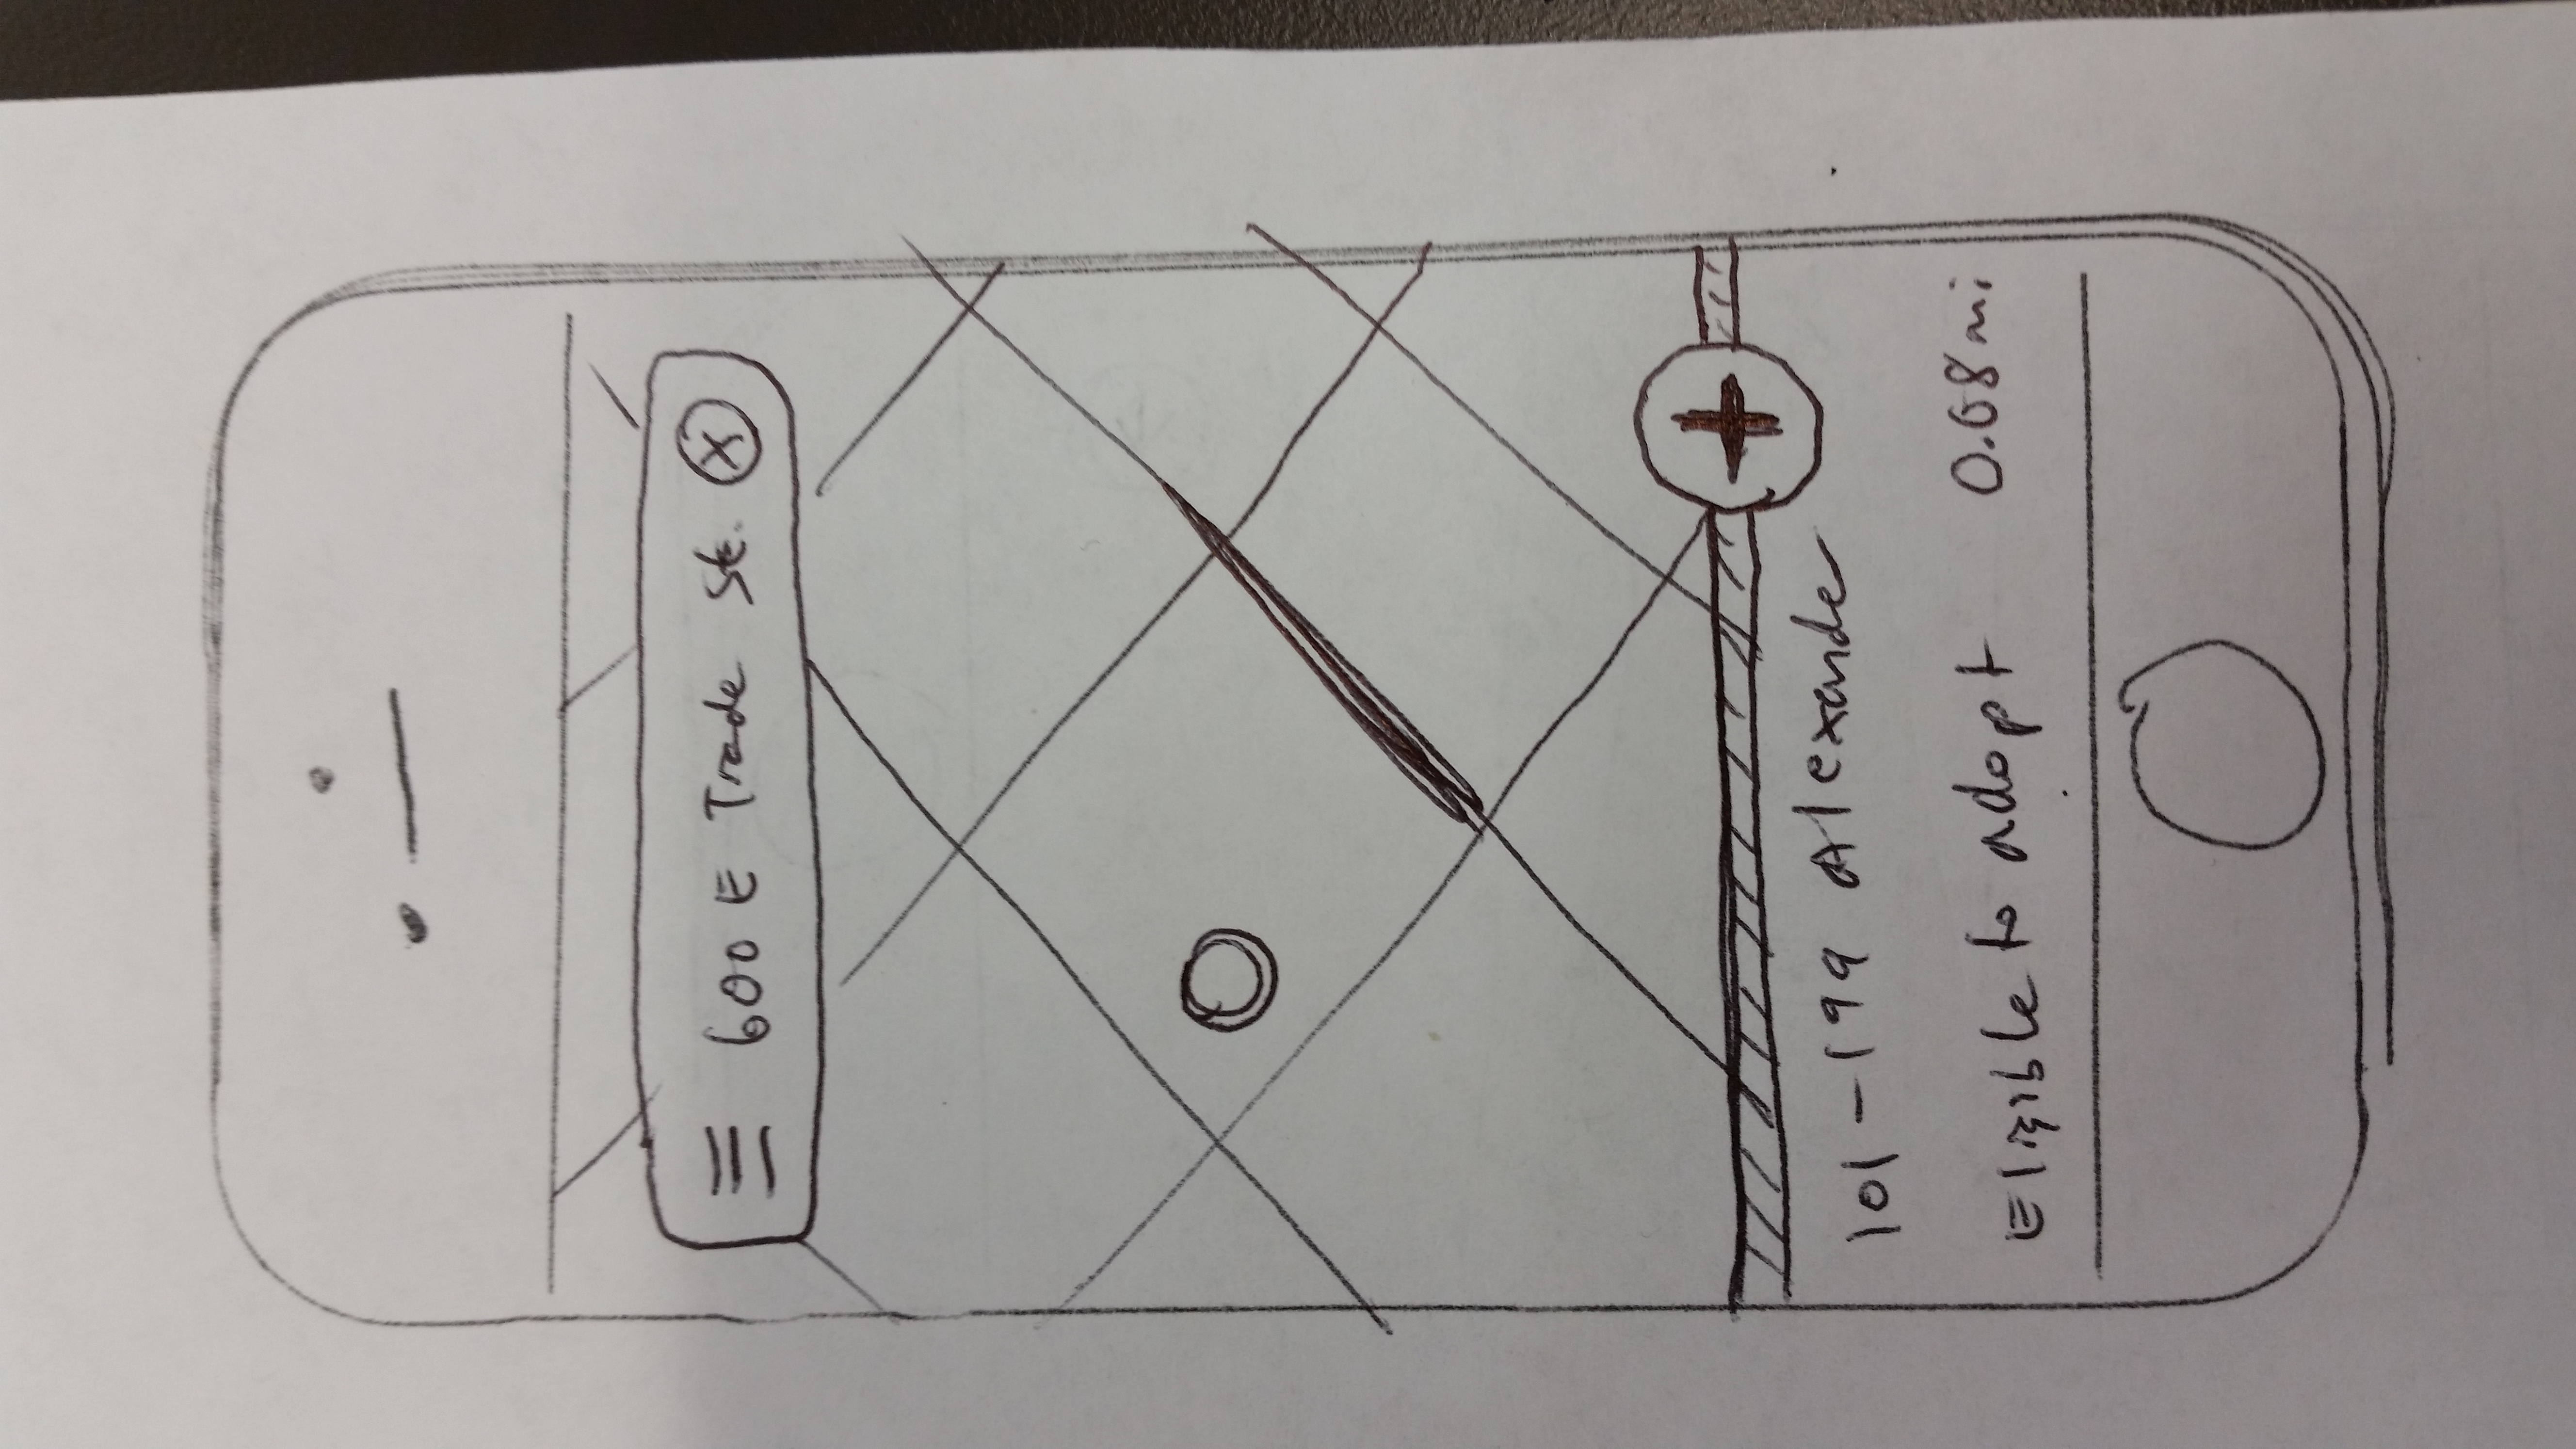 600 E Trade St. X
101-199 Alexander
Eligible to adopt 0.08mi